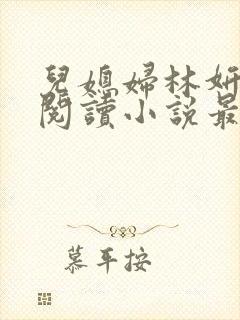 兒媳婦林妍
閱讀小說最
慕平按